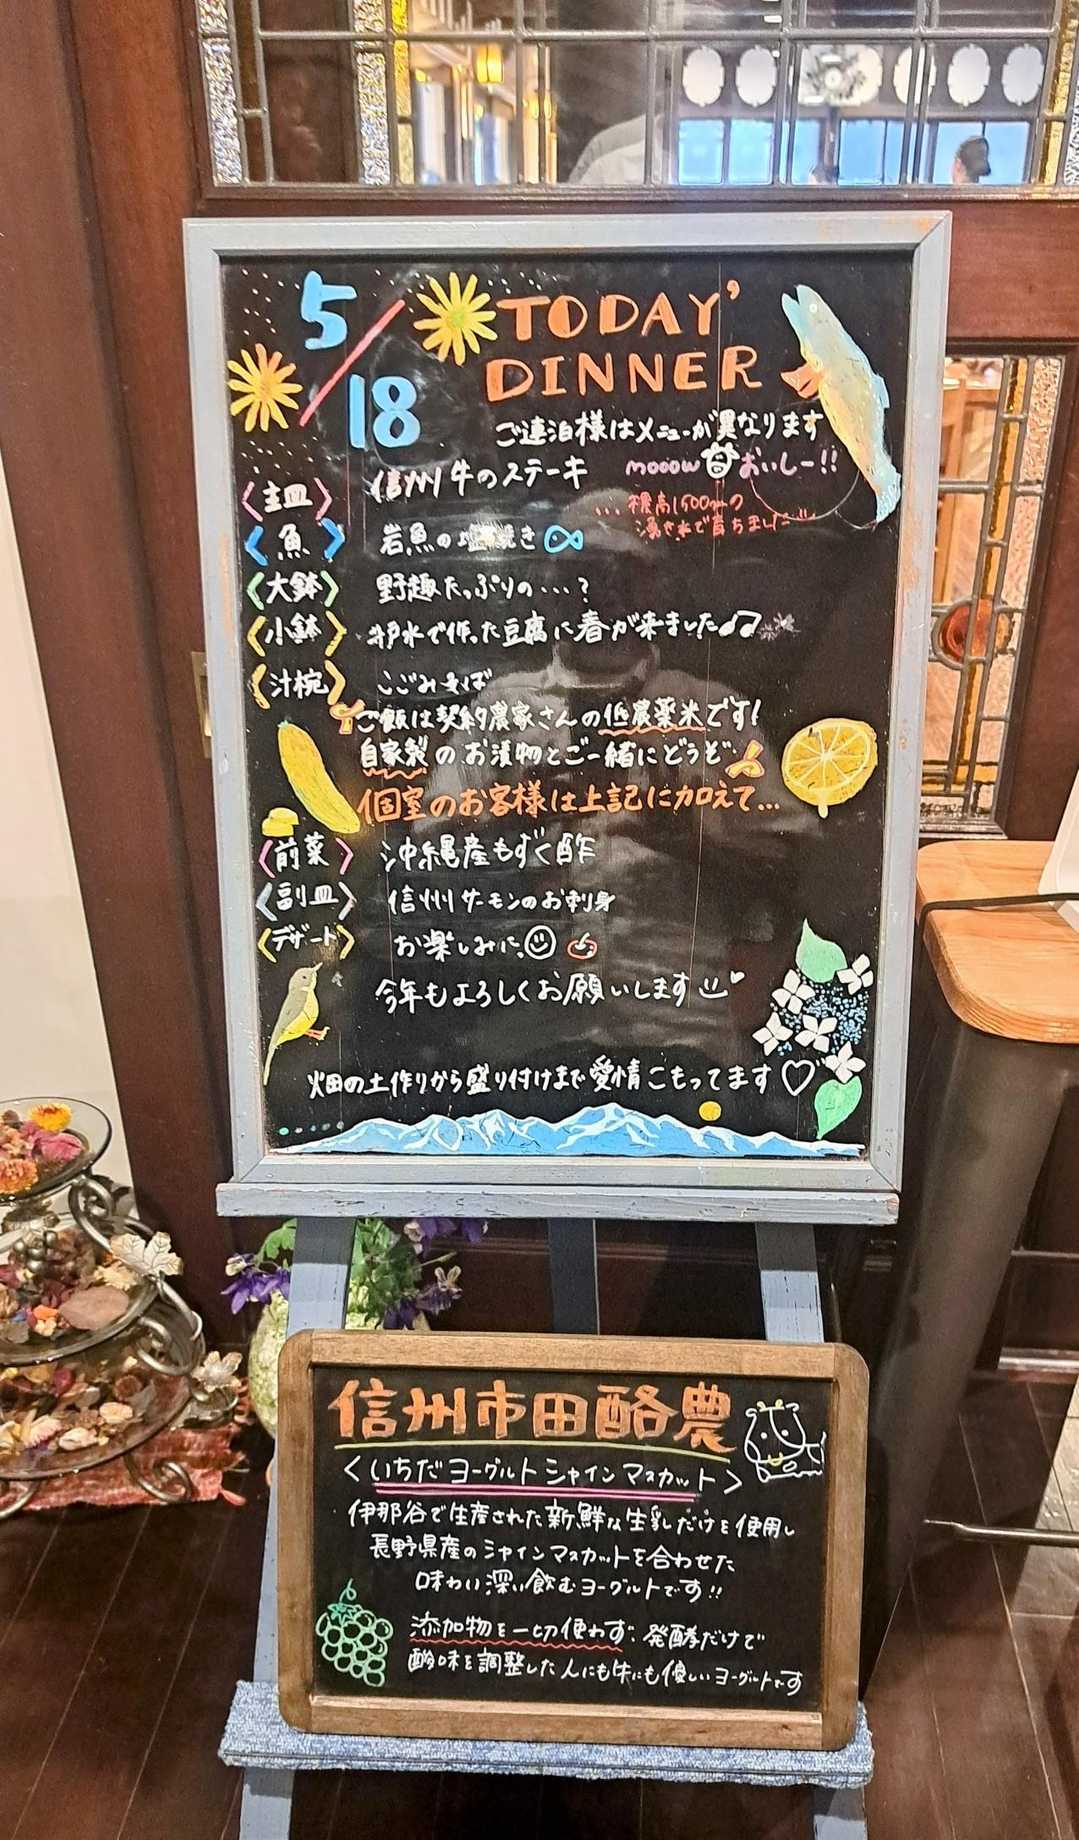 5/18
TODAY' DINNER
ご連泊様はメニューが異なります
〈主皿〉 信州牛のステーキ mooowおいしー!!
〈魚〉 岩魚の塩焼き …穂高1500mの
湧き水で育ちました
〈大鉢〉 野趣たっぷりの…?
〈小鉢〉 井戸水で作った豆腐に春が来ました♫
〈汁椀〉 こごみそば
ご飯は契約農家さんの低農薬米です!
自家製のお漬物とご一緒にどうぞ
個室のお客様は上記に加えて…
〈前菜〉 沖縄産もずく酢
〈副皿〉 信州サーモンのお刺身
〈デザート〉 お楽しみに。
今年もよろしくお願いします
畑の土作りから盛り付けまで愛情こもってます♡
信州市田酪農
〈いちだヨーグルトシャインマスカット〉
伊那谷で生産された新鮮な生乳だけを使用し
長野県産のシャインマスカットを合わせた
味わい深い飲むヨーグルトです!!
添加物を一切使わず、発酵だけで
酸味を調整した人にも牛にも優しいヨーグルトです